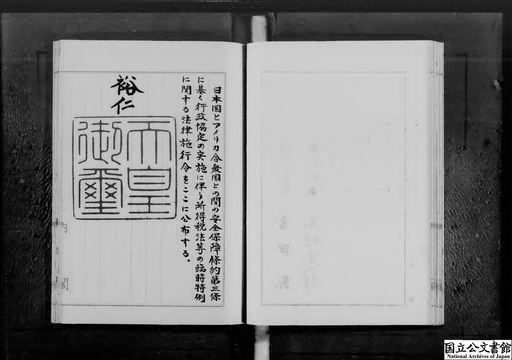 日本国とアメリカ合衆国との間の安全保障條約第三條
に基く行政協定の実施に伴う所得税法等の臨時特例
に関する法律施行令をここに公布する。
裕仁
天皇
御璽
国立公文書館
National Archives of Japan